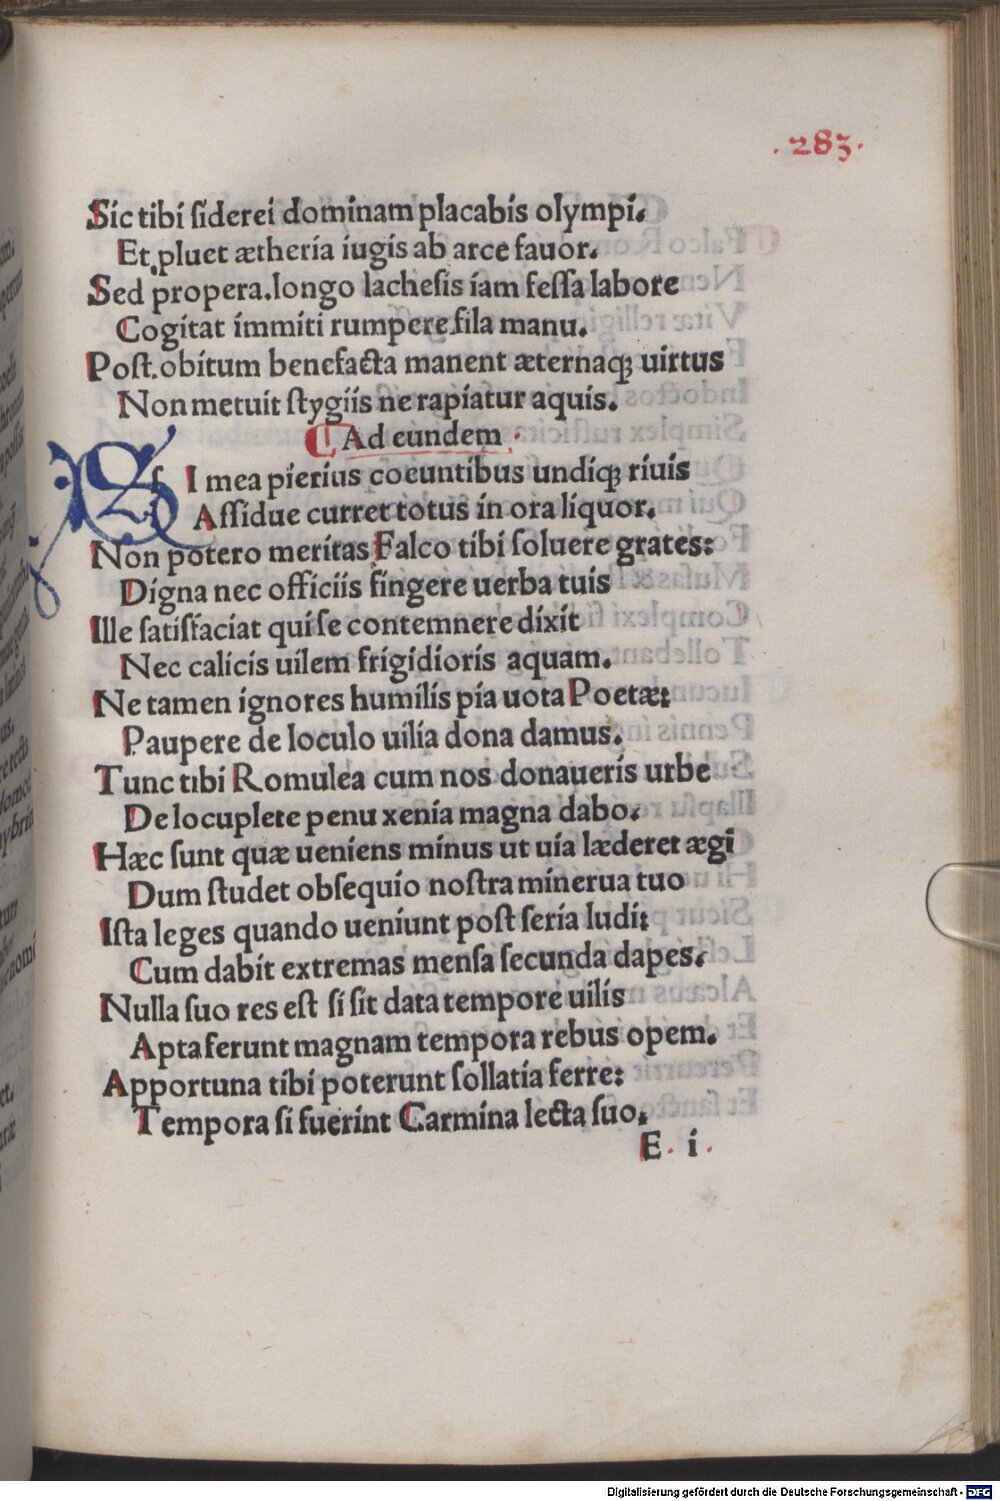 .283.
Sic tibi siderei dominam placabis olympi.
Et pluet ætheria iugis ab arce fauor.
Sed propera. longo lachesis iam fessa labore
Cogitat immiti rumpere fila manu.
Post obitum benefacta manent æternaqꝫ uirtus
Non metuit stygiis ne rapiatur aquis.
Ad eundem .
SI mea pierius coeuntibus undiqꝫ riuis
Assidue curret totus in ora liquor.
Non potero meritas Falco tibi soluere grates:
Digna nec officiis fingere uerba tuis
Ille satisfaciat qui se contemnere dixit
Nec calicis uilem frigidioris aquam.
Ne tamen ignores humilis pia uota Poetæ:
Paupere de loculo uilia dona damus.
Tunc tibi Romulea cum nos donaueris urbe
De locuplete penu xenia magna dabo.
Hæc sunt quæ ueniens minus ut uia læderet ægi
Dum studet obsequio nostra minerua tuo
Ista leges quando ueniunt post seria ludi:
Cum dabit extremas mensa secunda dapes.
Nulla suo res est si sit data tempore uilis
Apta ferunt magnam tempora rebus opem.
Apportuna tibi poterunt sollatia ferre:
Tempora si fuerint Carmina lecta suo.
E. i.
Digitalisierung gefördert durch die Deutsche Forschungsgemeinschaft - DFG